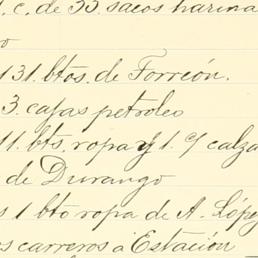 1. c. de 33 sacos harina
o
131. btos. de Torreón.
3. cajas petroleo
11. bts. ropa y 1. c/ calza
de Durango
s 1 bto ropa de A. López
os carreros a Estación